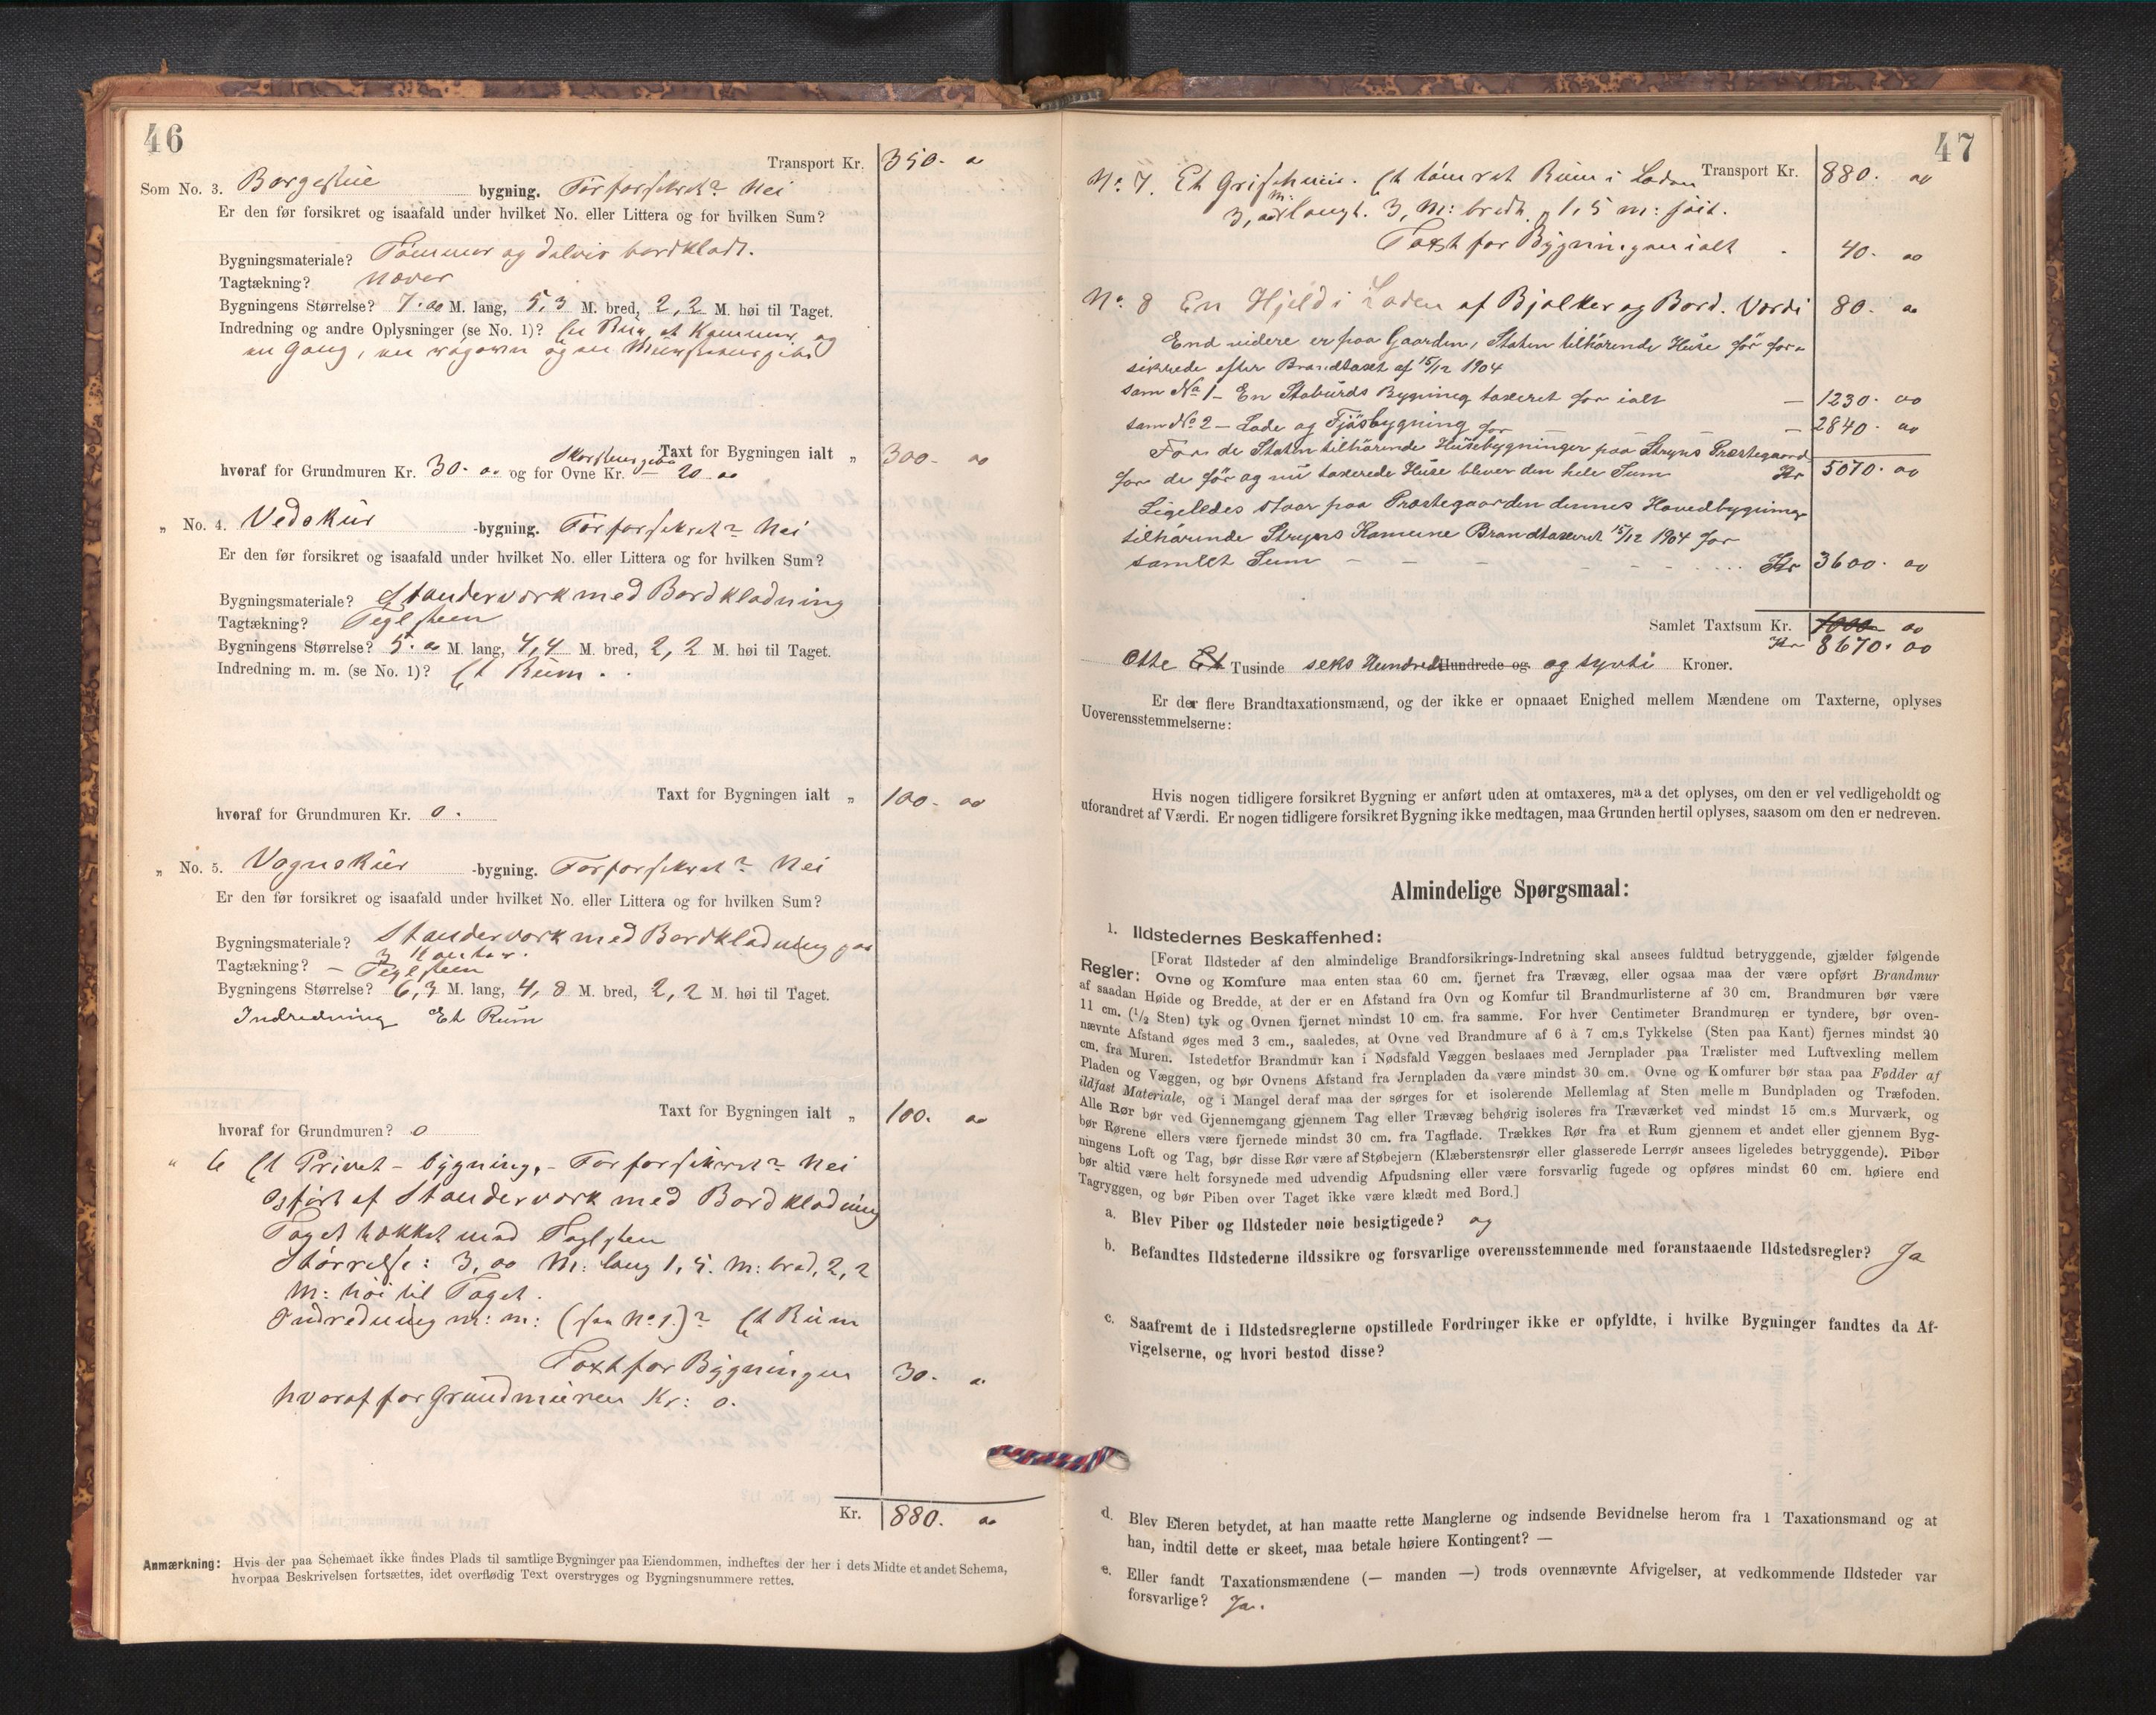 46
Transport Kr. 350. 00
Som No. 3. Borgestue bygning. Før forsikret? Nei
Er den før forsikret og isaafald under hvilket No. eller Littera og for hvilken Sum?
Bygningsmateriale? Tømmer og delvis bordklædt.
Tagtækning? Næver
Bygningens Størrelse? 7.00 M. lang, 5,3 M. bred, 2,2 M. høi til Taget.
Indredning og andre Oplysninger (se No. 1)? En Stue, et Kammer og
en Gang, en
Taxt for Bygningen ialt „ 300. 00
Skorstenspibe
hvoraf for Grundmuren Kr. 30. 00 og for Ovne Kr. — 20 00
„ No. 4. Vedskur -bygning. Før forsikret? Nei
Er den før forsikret og isaafald under hvilket No. eller Littera og for hvilken Sum?
Bygningsmateriale? Standerværk med Bordklædning
Tagtækning? Teglsteen
Bygningens Størrelse? 5.00 M. lang, 4,4 M. bred, 2,2 M. høi til Taget.
Indredning m. m. (se No. 1)? Et Rum.
Taxt for Bygningen ialt „ 100. 00
hvoraf for Grundmuren Kr. 0.
„ No. 5. Vognskur -bygning. Før forsikret? Nei
Er den før forsikret og isaafald under hvilket No. eller Littera og for hvilken Sum?
Bygningsmateriale? Standerværk med Bordklædning paa
3 Kanter.
Tagtækning? — Teglsteen
Bygningens Størrelse? 6,3 M. lang, 4,8 M. bred, 2,2 M. høi til Taget.
Indredning Et Rum
Taxt for Bygningen ialt „ 100. 00
hvoraf for Grundmuren? 0
„ 6 Et Privet-bygning, - Før forsikret? Nei
Opført af Standerværk med Bordklædning
Taget tækket med Teglsten
Størrelse: 3,00 M: lang 1,5. M: bred, 2,2
M: høi til Taget.
Indredning m: m: (see No 1.)? Et Rum
Taxt for Bygningen 30. 00
hvoraf for Grundmuren Kr: 0.
Kr. 880. 00
Anmærkning: Hvis der paa Schemaet ikke findes Plads til samtlige Bygninger paa Eiendommen, indheftes der her i dets Midte et andet Schema,
hvorpaa Beskrivelsen fortsættes, idet overflødig Text overstryges og Bygningsnummere rettes.
47
Transport Kr. 880. 00
No. 7. Et Grisehuus. Et tømret Rum i Laden
3,00 M: langt. 3, M: bredt. 1,5 m: høit.
Taxt for Bygningen ialt . 40. 00
No. 8 En Hjeld i Laden af Bjælker og Bord. Værdi 80. 00
End videre er paa Gaarden, Staten tilhørende Huse før for-
sikrede efter Brandtaxt af 15/12 1904
som No 1 - En Staburds Bygning taxeret for ialt — 1230. 00
som No 2 — Lade og Fjøsbygning for — 2840. 00
For de Staten tilhørende Husebygninger paa Stryns Præstegaard
for de før og nu taxerede Huse bliver den hele Sum Kr 5070. 00
Ligeledes staar paa Præstegaarden dennes Hovedbygning
tilhørende Stryns Komune Brandtaxeret 15/12 1904 for
samlet Sum - - - - - Kr 3600. 00
Samlet Taxtsum Kr. 1000 00
Kr 8670. 00
Otte Et Tusinde seks Hundred Hundrede og og sytti Kroner.
Er der flere Brandtaxationsmænd, og der ikke er opnaaet Enighed mellem Mændene om Taxterne, oplyses
Uoverensstemmelserne:
Hvis nogen tidligere forsikret Bygning er anført uden at omtaxeres, maa det oplyses, om den er vel vedligeholdt og
uforandret af Værdi. Er nogen tidligere forsikret Bygning ikke medtagen, maa Grunden hertil oplyses, saasom om den er nedreven.
Almindelige Spørgsmaal:
1. Ildstedernes Beskaffenhed:
[Forat Ildsteder af den almindelige Brandforsikrings-Indretning skal ansees fuldtud betryggende, gjælder følgende
Regler: Ovne og Komfure maa enten staa 60 cm. fjernet fra Trævæg, eller ogsaa maa der være opført Brandmur
af saadan Høide og Bredde, at der er en Afstand fra Ovn og Komfur til Brandmurlisterne af 30 cm. Brandmuren bør være
11 cm. (1/2 Sten) tyk og Ovnen fjernet mindst 10 cm. fra samme. For hver Centimeter Brandmuren er tyndere, bør oven-
nævnte Afstand øges med 3 cm., saaledes, at Ovne ved Brandmure af 6 à 7 cm.s Tykkelse (Sten paa Kant) fjernes mindst 20
cm. fra Muren. Istedetfor Brandmur kan i Nødsfald Væggen beslaaes med Jernplader paa Trælister med Luftvexling mellem
Pladen og Væggen, og bør Ovnens Afstand fra Jernpladen da være mindst 30 cm. Ovne og Komfurer bør staa paa Fødder af
ildfast Materiale, og i Mangel deraf maa der sørges for et isolerende Mellemlag af Sten mellem Bundpladen og Træfoden.
Alle Rør bør ved Gjennemgang gjennem Tag eller Trævæg behørig isoleres fra Træværket ved mindst 15 cm.s Murværk, og
bør Rørene ellers være fjernede mindst 30 cm. fra Tagflade. Trækkes Rør fra et Rum gjennem et andet eller gjennem Byg-
ningens Loft og Tag, bør disse Rør være af Støbejern (Klæberstensrør eller glasserede Lerrør ansees ligeledes betryggende). Piber
bør altid være helt forsynede med udvendig Afpudsning eller være forsvarlig fugede og opføres mindst 60 cm. høiere end
Tagryggen, og bør Piben over Taget ikke være klædt med Bord.]
a. Blev Piber og Ildsteder nøie besigtigede? og
b. Befandtes Ildstederne ildssikre og forsvarlige overensstemmende med foranstaaende Ildstedsregler? Ja
c. Saafremt de i Ildstedsreglerne opstillede Fordringer ikke er opfyldte, i hvilke Bygninger fandtes da Af-
vigelserne, og hvori bestod disse?
d. Blev Eieren betydet, at han maatte rette Manglerne og indsende Bevidnelse herom fra 1 Taxationsmand og at
han, indtil dette er skeet, maa betale høiere Kontingent? —
e. Eller fandt Taxationsmændene (— manden —) trods ovennævnte Afvigelser, at vedkommende Ildsteder var
forsvarlige? Ja.